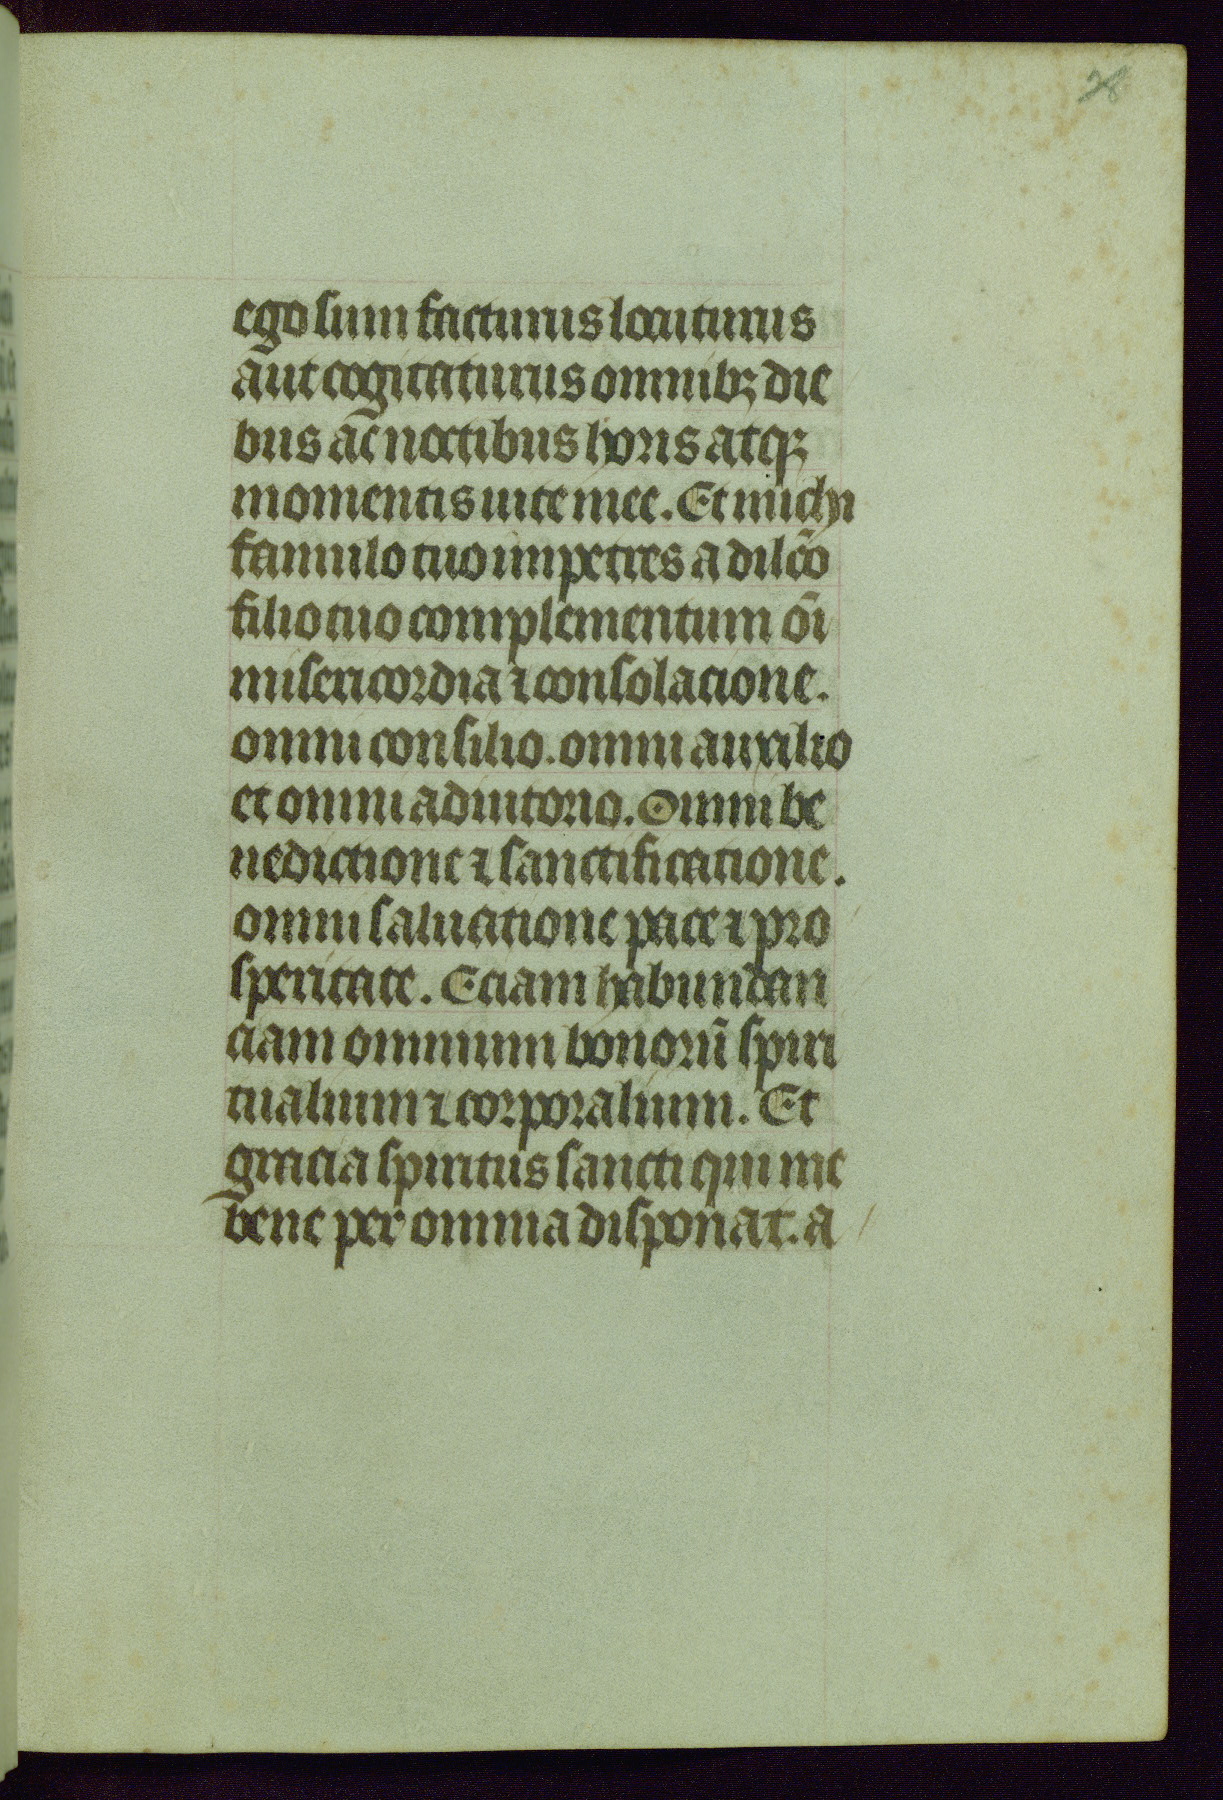 28
ego sum facturus locuturus
aut cogitaturus omnibꝫ die
bus ac noctibus horis atqꝫ
momentis uite mee. Et michi
famulo tuo impetres a dilc̄o
filio tuo complementum oı̄
misericordia ⁊ consolacione.
omni consilio. omni auxilio
et omni adiutorio. Omni be
nedictione ⁊ sanctificatione.
omni saluatione pace ⁊ pro
speritate. Eciam habundan
ciam omnium bonorū spiri
tualium ⁊ corporalium. Et
gracia spiritus sancti qui me
bene per omnia disponat. a